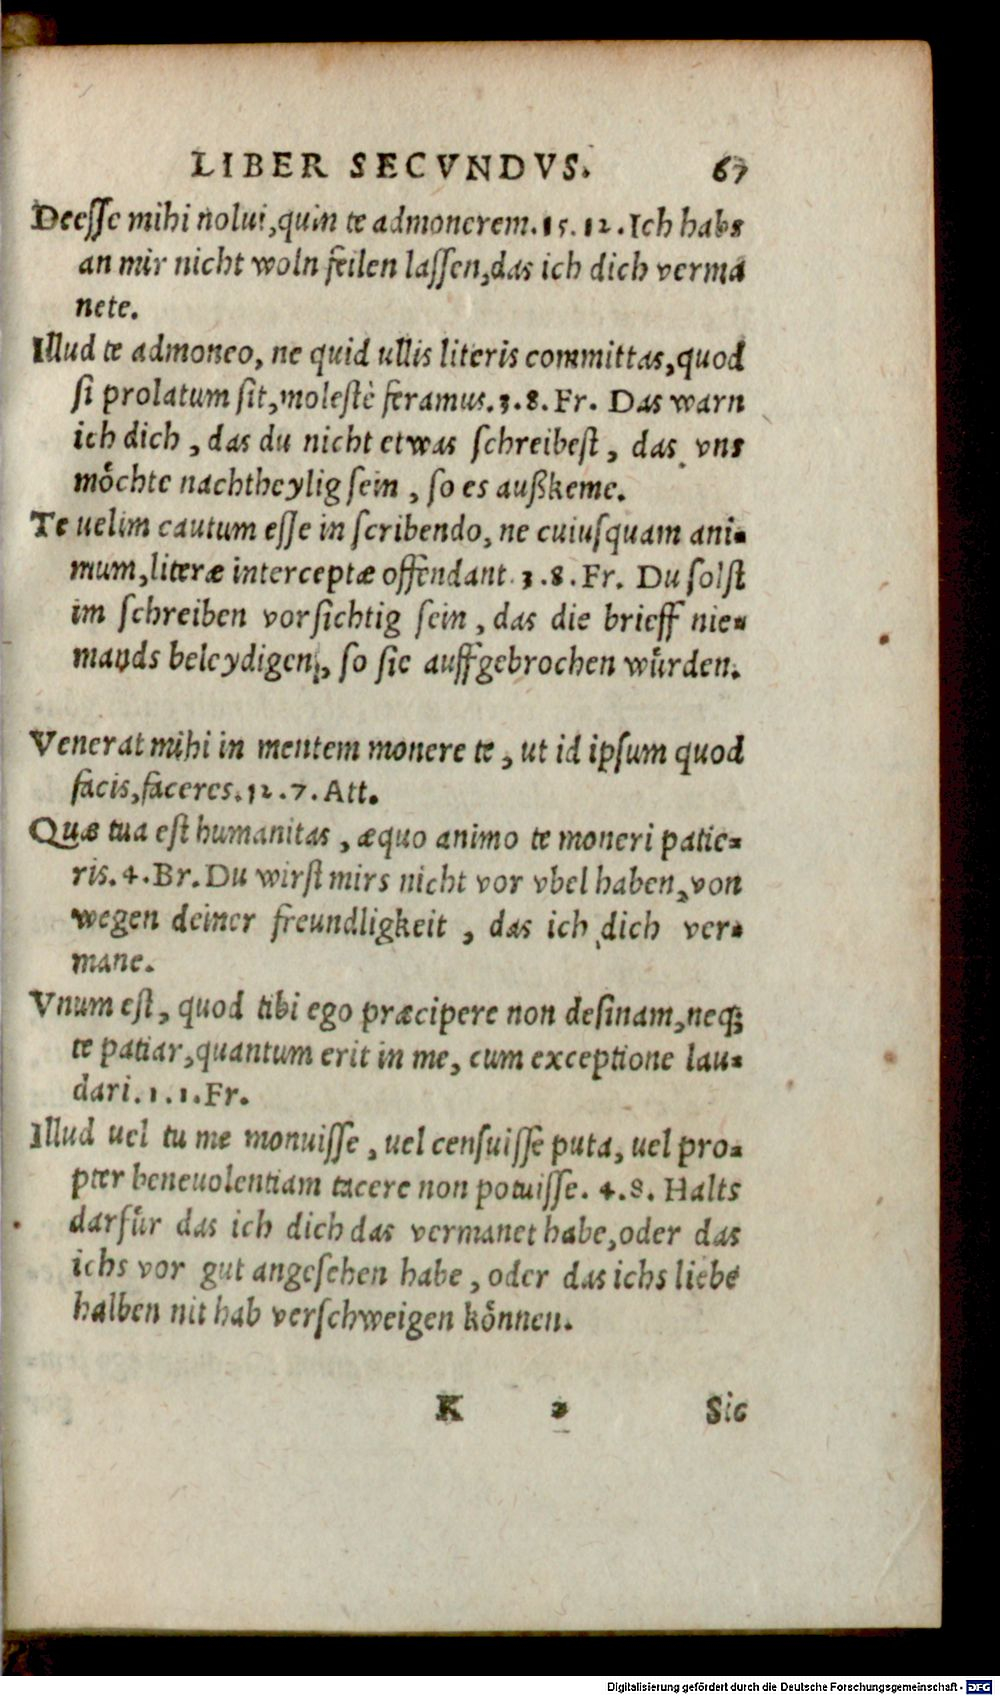 LIBER SECVNDVS. 67
Deesse mihi nolui, quin te admonerem. 15. 12. Ich habs
an mir nicht woln feilen lassen, das ich dich verma
nete.
Illud te admoneo, ne quid ullis literis committas, quod
si prolatum sit, molestè feramus. 3. 8. Fr. Das warn
ich dich, das du nicht etwas schreibest, das vns
möchte nachtheylig sein, so es außkeme.
Te uelim cautum esse in scribendo, ne cuiusquam ani-
mum, literæ interceptæ offendant. 3. 8. Fr. Du solst
im schreiben vorsichtig sein, das die brieff nie-
mands beleydigen, so sie auffgebrochen würden.
Venerat mihi in mentem monere te, ut id ipsum quod
facis, faceres. 12. 7. Att.
Quæ tua est humanitas, æquo animo te moneri patie-
ris. 4. Br. Du wirst mirs nicht vor vbel haben, von
wegen deiner freundligkeit, das ich dich ver-
mane.
Vnum est, quod tibi ego præcipere non desinam, neq;
te patiar, quantum erit in me, cum exceptione lau-
dari. 1. 1. Fr.
Illud uel tu me monuisse, uel censuisse puta, uel pro-
pter beneuolentiam tacere non potuisse. 4. 8. Halts
darfür das ich dich das vermanet habe, oder das
ichs vor gut angesehen habe, oder das ichs liebe
halben nit hab verschweigen können.
K 2 Sic
Digitalisierung gefördert durch die Deutsche Forschungsgemeinschaft - DFG